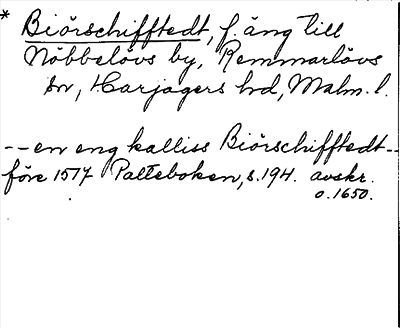 * Biörschifftedt, f. äng till
Nöbbelövs by, Remmarlövs
sn, Harjagers hd, Malm. l.
-- en eng kalliss Biörschifftedt --
före 1517 Palteboken, s. 194. avskr.
o. 1650.